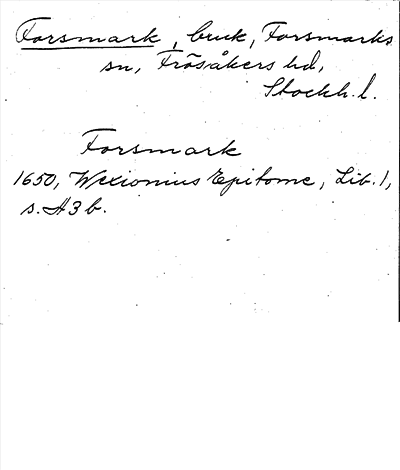 Forsmark, bruk, Forsmarks
sn, Frösåkers hd,
Stockh. l.
Forsmark
1650, Wexionius Epitome, Lib. 1,
s. A3 b.